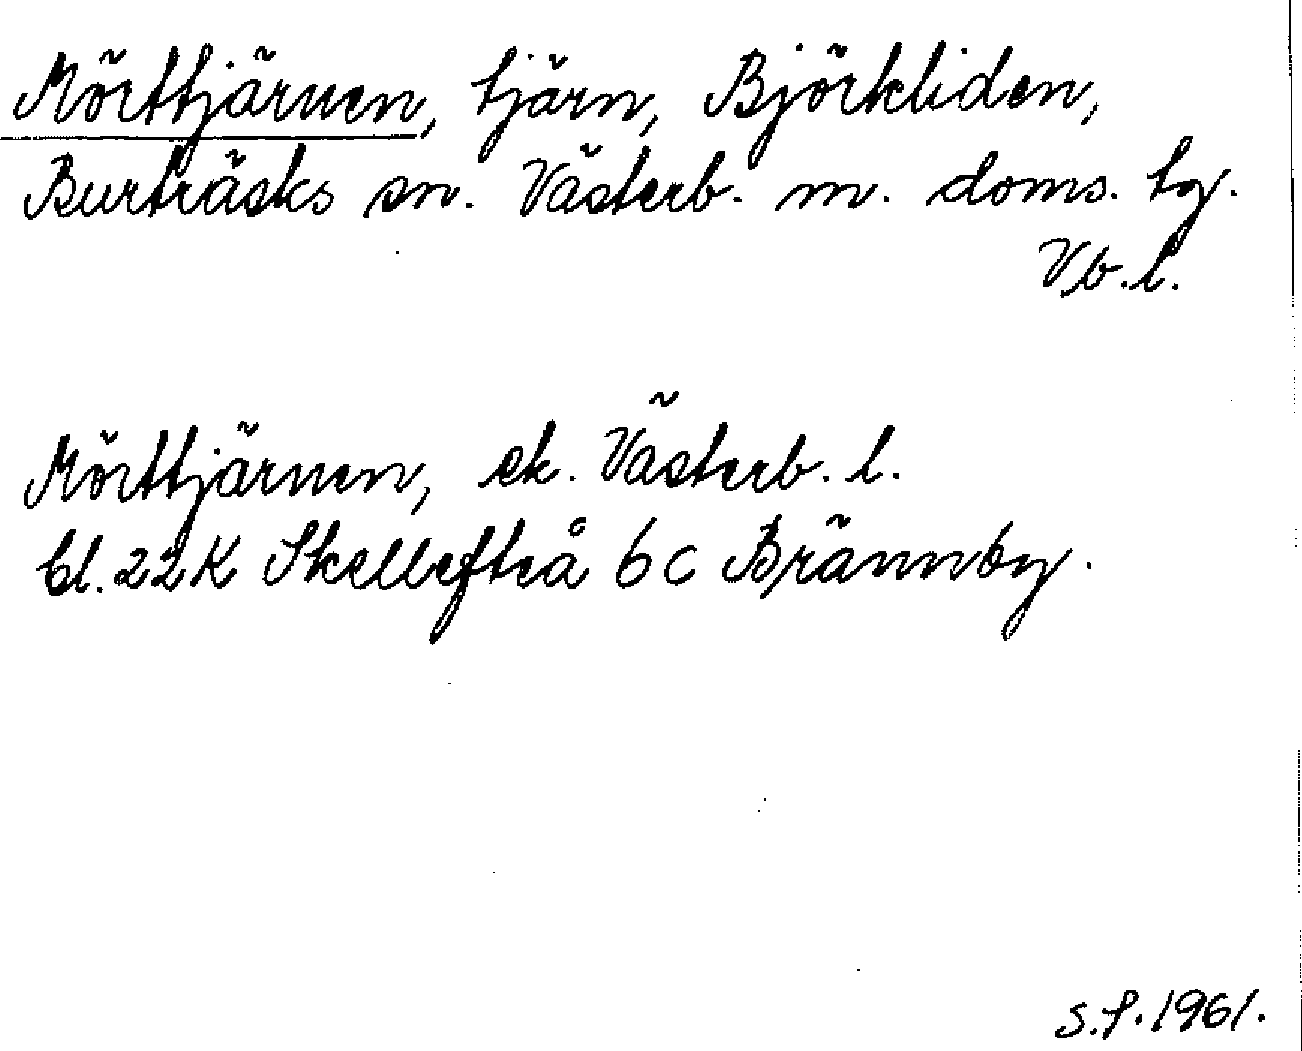 Mörttjärnen, tjärn, Björkliden,
Burträsks sn. Västerb. m. doms. tg.
Vb. l.
Mörttjärnen, ek. Västerb. l.
bl. 22K Skellefteå 6c Brännby.
S.f. 1961.